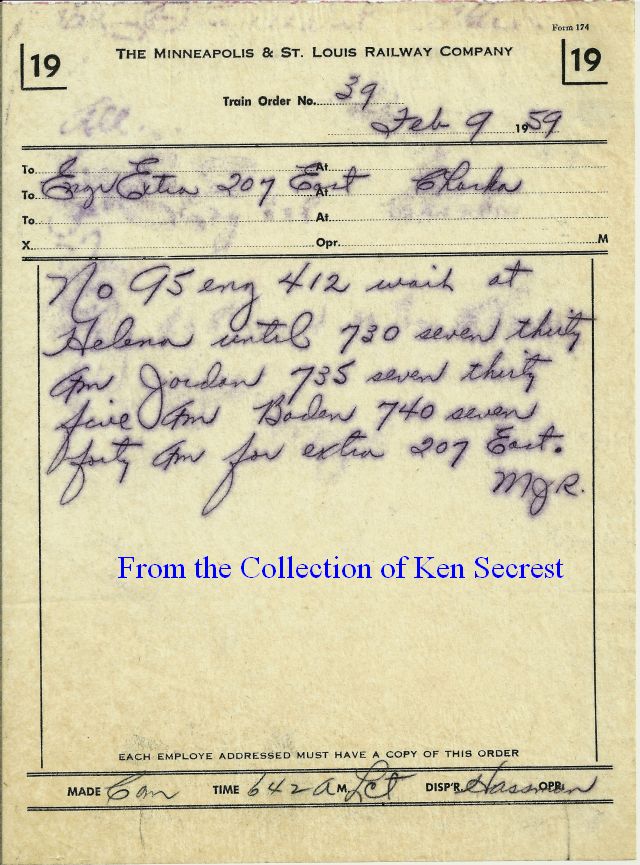 Form 174
19 THE MINNEAPOLIS & ST. LOUIS RAILWAY COMPANY 19
Train Order No. 39
Feb 9 1959
To At
To Engr Extra 207 East At Chaska
To At
X Opr. M
No 95 eng 412 wait at
Helena until 730 seven thirty
Am Jordan 735 seven thirty
five Am Boden 740 seven
forty Am for extra 207 East.
MJR.
From the Collection of Ken Secrest
EACH EMPLOYE ADDRESSED MUST HAVE A COPY OF THIS ORDER
MADE Com TIME 642 A M. DISP'R. Hassman OPR.